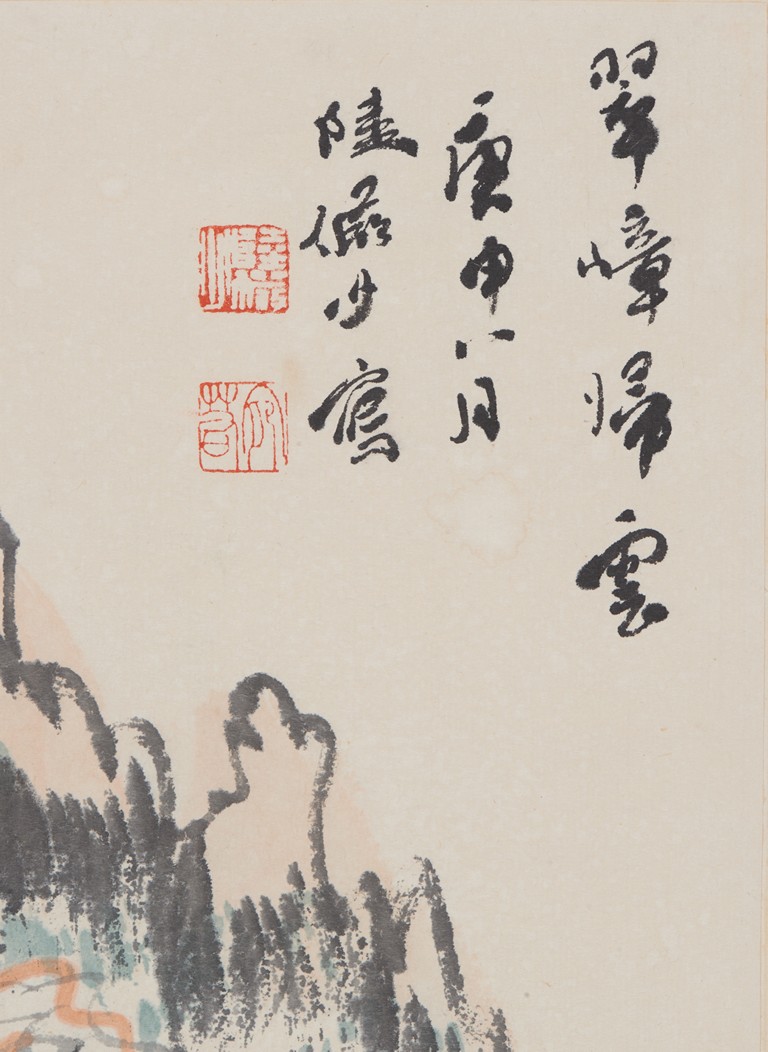 翠嶂歸雲
庚申八月
陸儼少寫
宛若